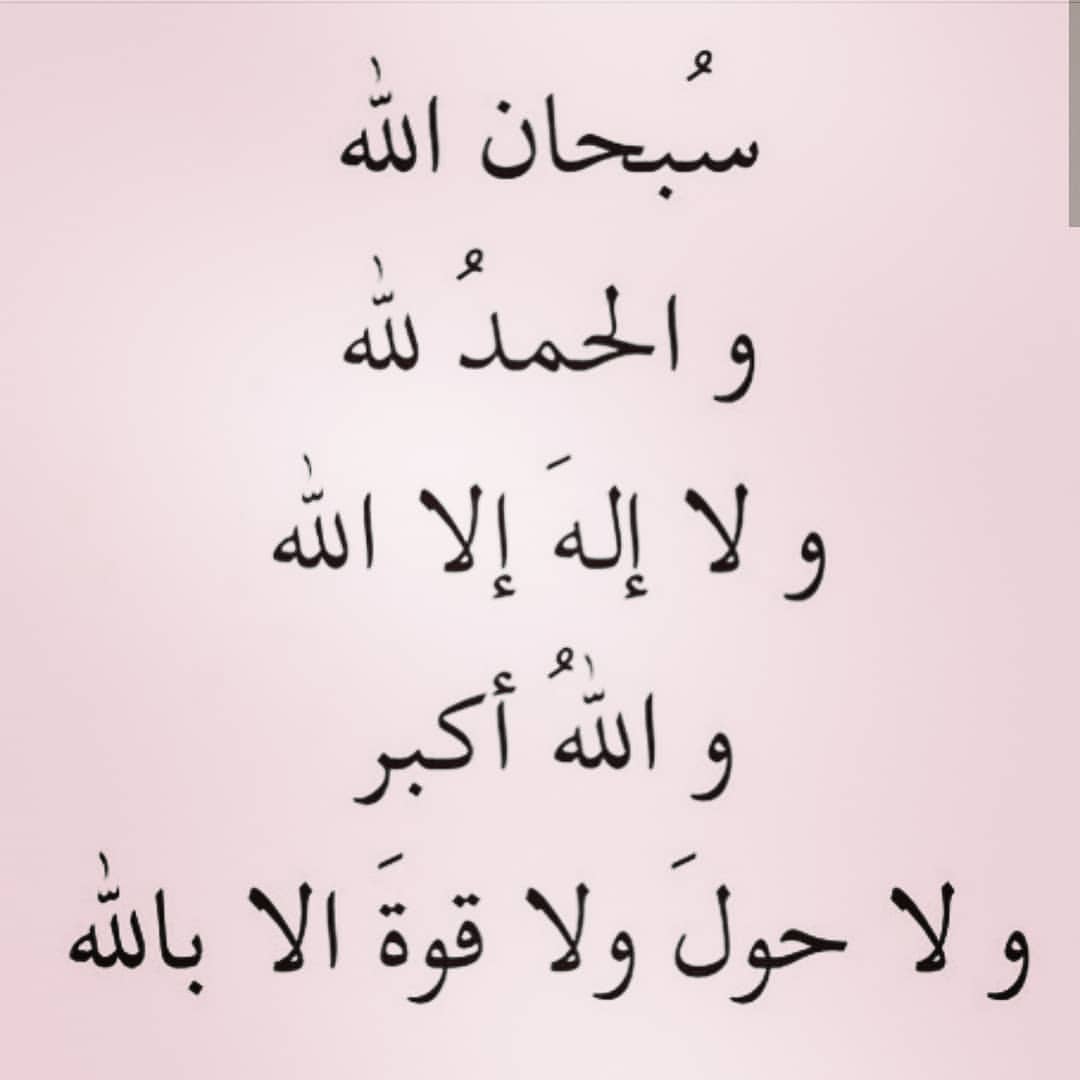 سُبحان الله
و الحمدُ لله
و لا إلهَ إلا الله
و اللهُ أكبر
و لا حولَ ولا قوةَ الا بالله